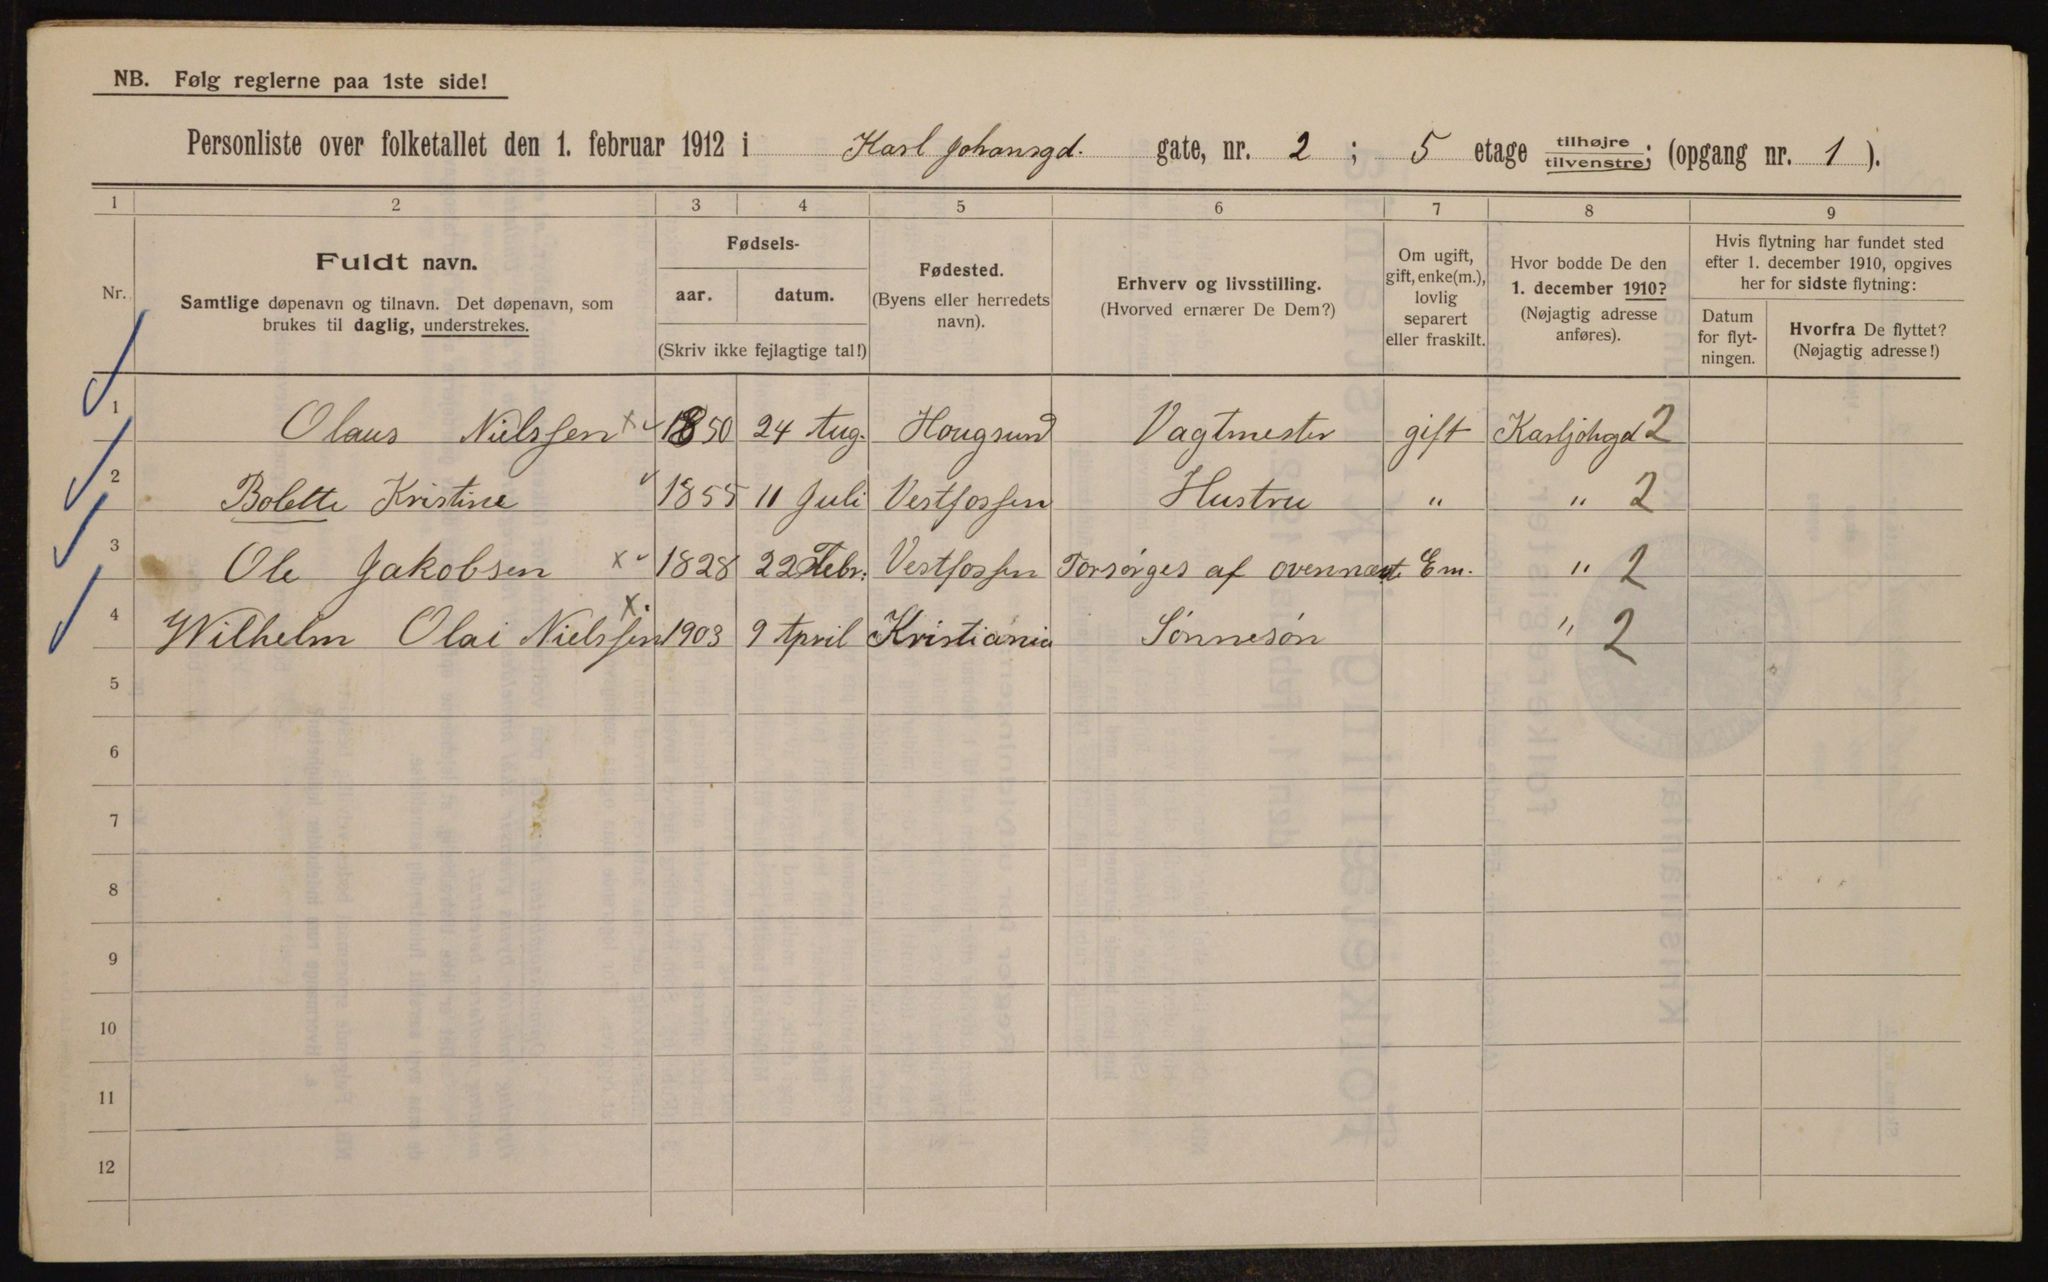 NB. Følg reglerne paa 1ste side!
Personliste over folketallet den 1. februar 1912 i Karl Johansgd. gate, nr. 2 ; 5 etage tilhøjre tilvenstre; (opgang nr. 1 ).
1 2 3 4 5 6 7 8 9
Nr.
Fuldt navn.
Samtlige døpenavn og tilnavn. Det døpenavn, som
brukes til daglig, understrekes.
Fødsels-
aar. datum.
(Skriv ikke fejlagtige tal!)
Fødested.
(Byens eller herredets
navn).
Erhverv og livsstilling.
(Hvorved ernærer De Dem?)
Om ugift,
gift, enke(m.),
lovlig
separert
eller fraskilt.
Hvor bodde De den
1. december 1910?
(Nøjagtig adresse
anføres).
Hvis flytning har fundet sted
efter 1. december 1910, opgives
her for sidste flytning:
Datum
for flyt-
ningen.
Hvorfra De flyttet?
(Nøjagtig adresse!)
1 Olaus Nielssen x 1850 24 Aug. Hougsund Vagtmester gift Karljohgd 2
2 Bolette Kristine 1855 11 Juli Vestfossen Hustru " " 2
3 Ole Jakobsen x 1828 22 Febr. Vestfossen Forsørges af ovennævnte Em. " 2
4 Wilhelm Olai Nielssen x 1903 9 April Kristiania Sønnesøn " 2
5
6
7
8
9
10
11
12